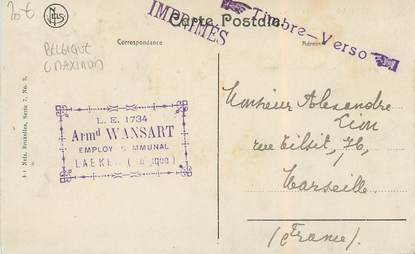 20 €
BELGIQUE
(MAXIMUM)
NELS
Carte Postale.
IMPRIMÉS
Timbre-Verso
Correspondance
Adresse
Nels, Bruxelles, Serie 7, No. 5.
L. E. 1734
Armd WANSART
EMPLOY MMUNAL
LAEKEN
Monsieur Alexandre
Lion
rue Tilsit, 76,
Marseille.
(France).